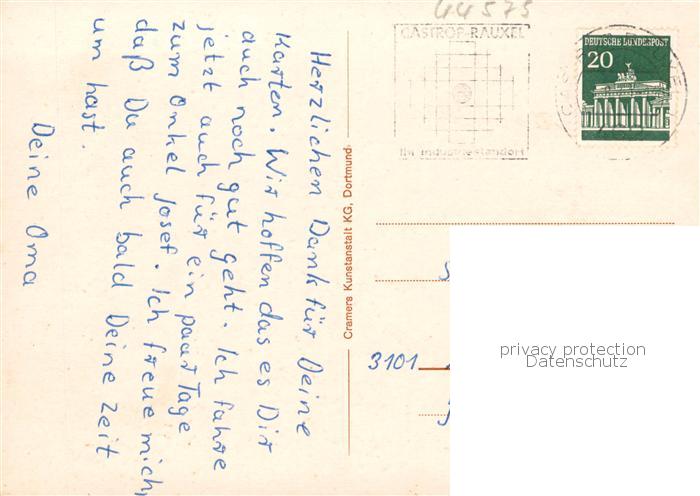 44575
CASTROP-RAUXEL
Ihr Industriestandort
DEUTSCHE BUNDESPOST
20
Herzlichen Dank für Deine
Karten. Wir hoffen das es Dir
auch noch gut geht. Ich fahre
jetzt auch für ein paar Tage
zum Onkel Josef. Ich freue mich,
daß Du auch bald Deine Zeit
um hast.
Deine Oma
Cramers Kunstanstalt KG, Dortmund
3101
privacy protection
Datenschutz